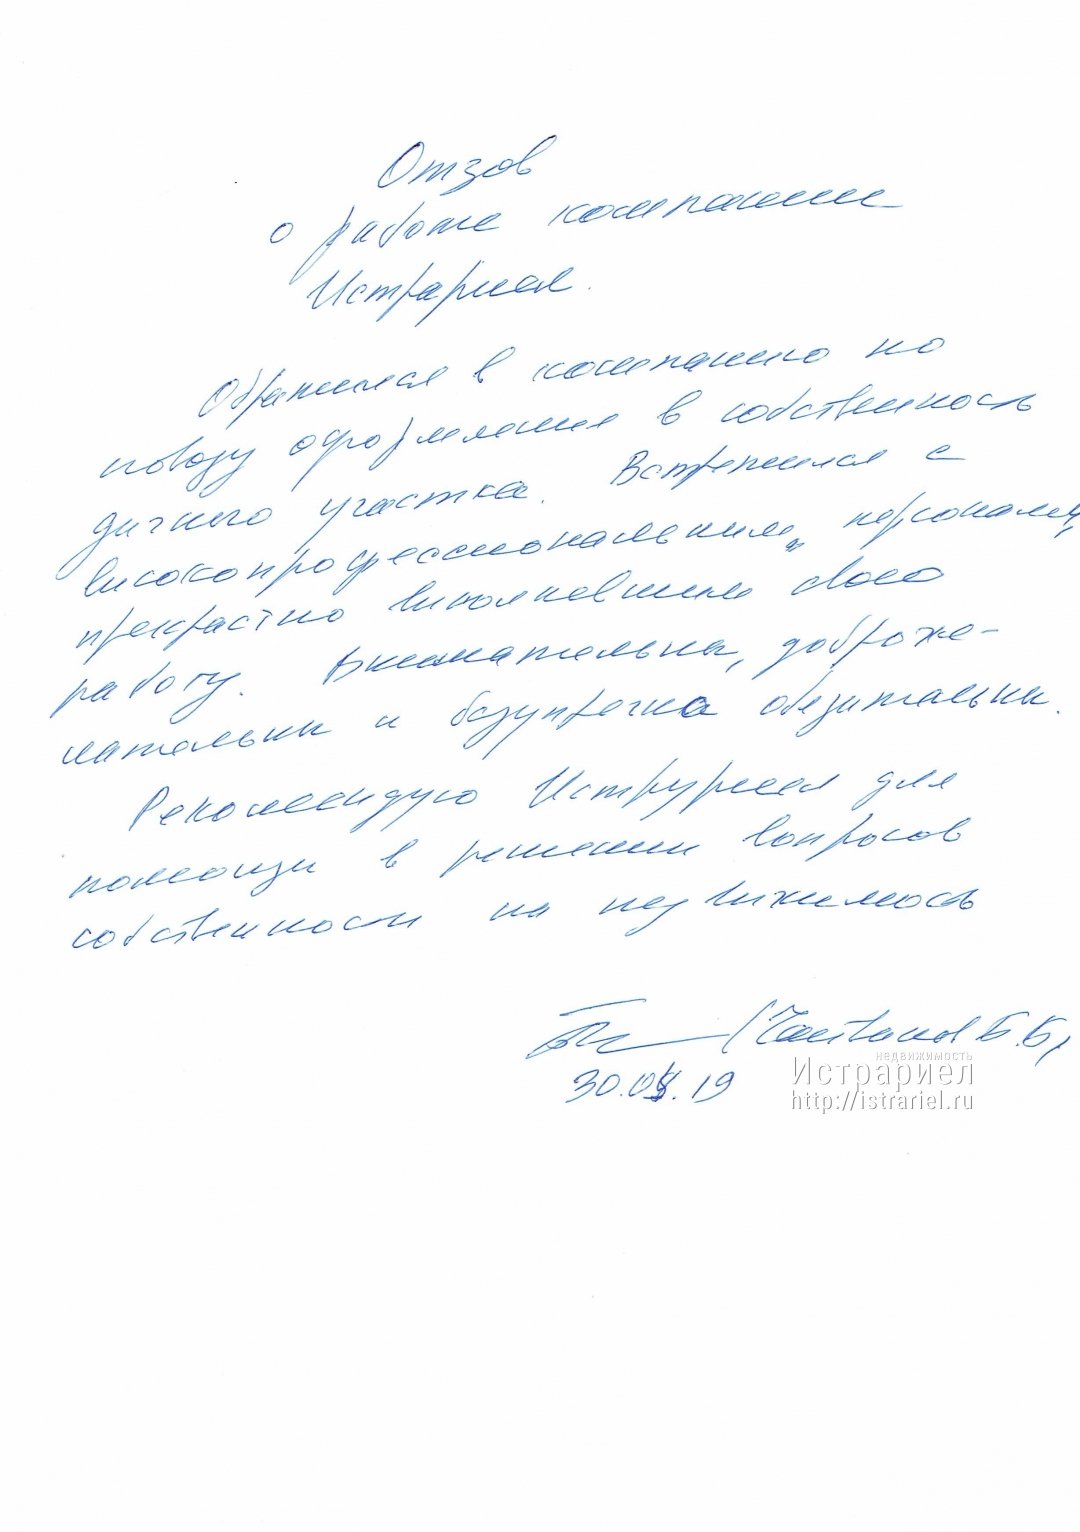 Отзов
о работе компании
Истрариел.
Обратился в компанию по
поводу оформления в собственность
дачного участка. Встретился с
високопрофессиональним персоналом,
прекрастно виполнявшим свою
работу. Внимательни, доброже-
лательни и безупречно обязательни.
Рекомендую Истрариел для
помощи в решении вопросов
собственности на недвижимость
Б.Б.
30.05.19
недвижимость
Истрариел
http://istrariel.ru